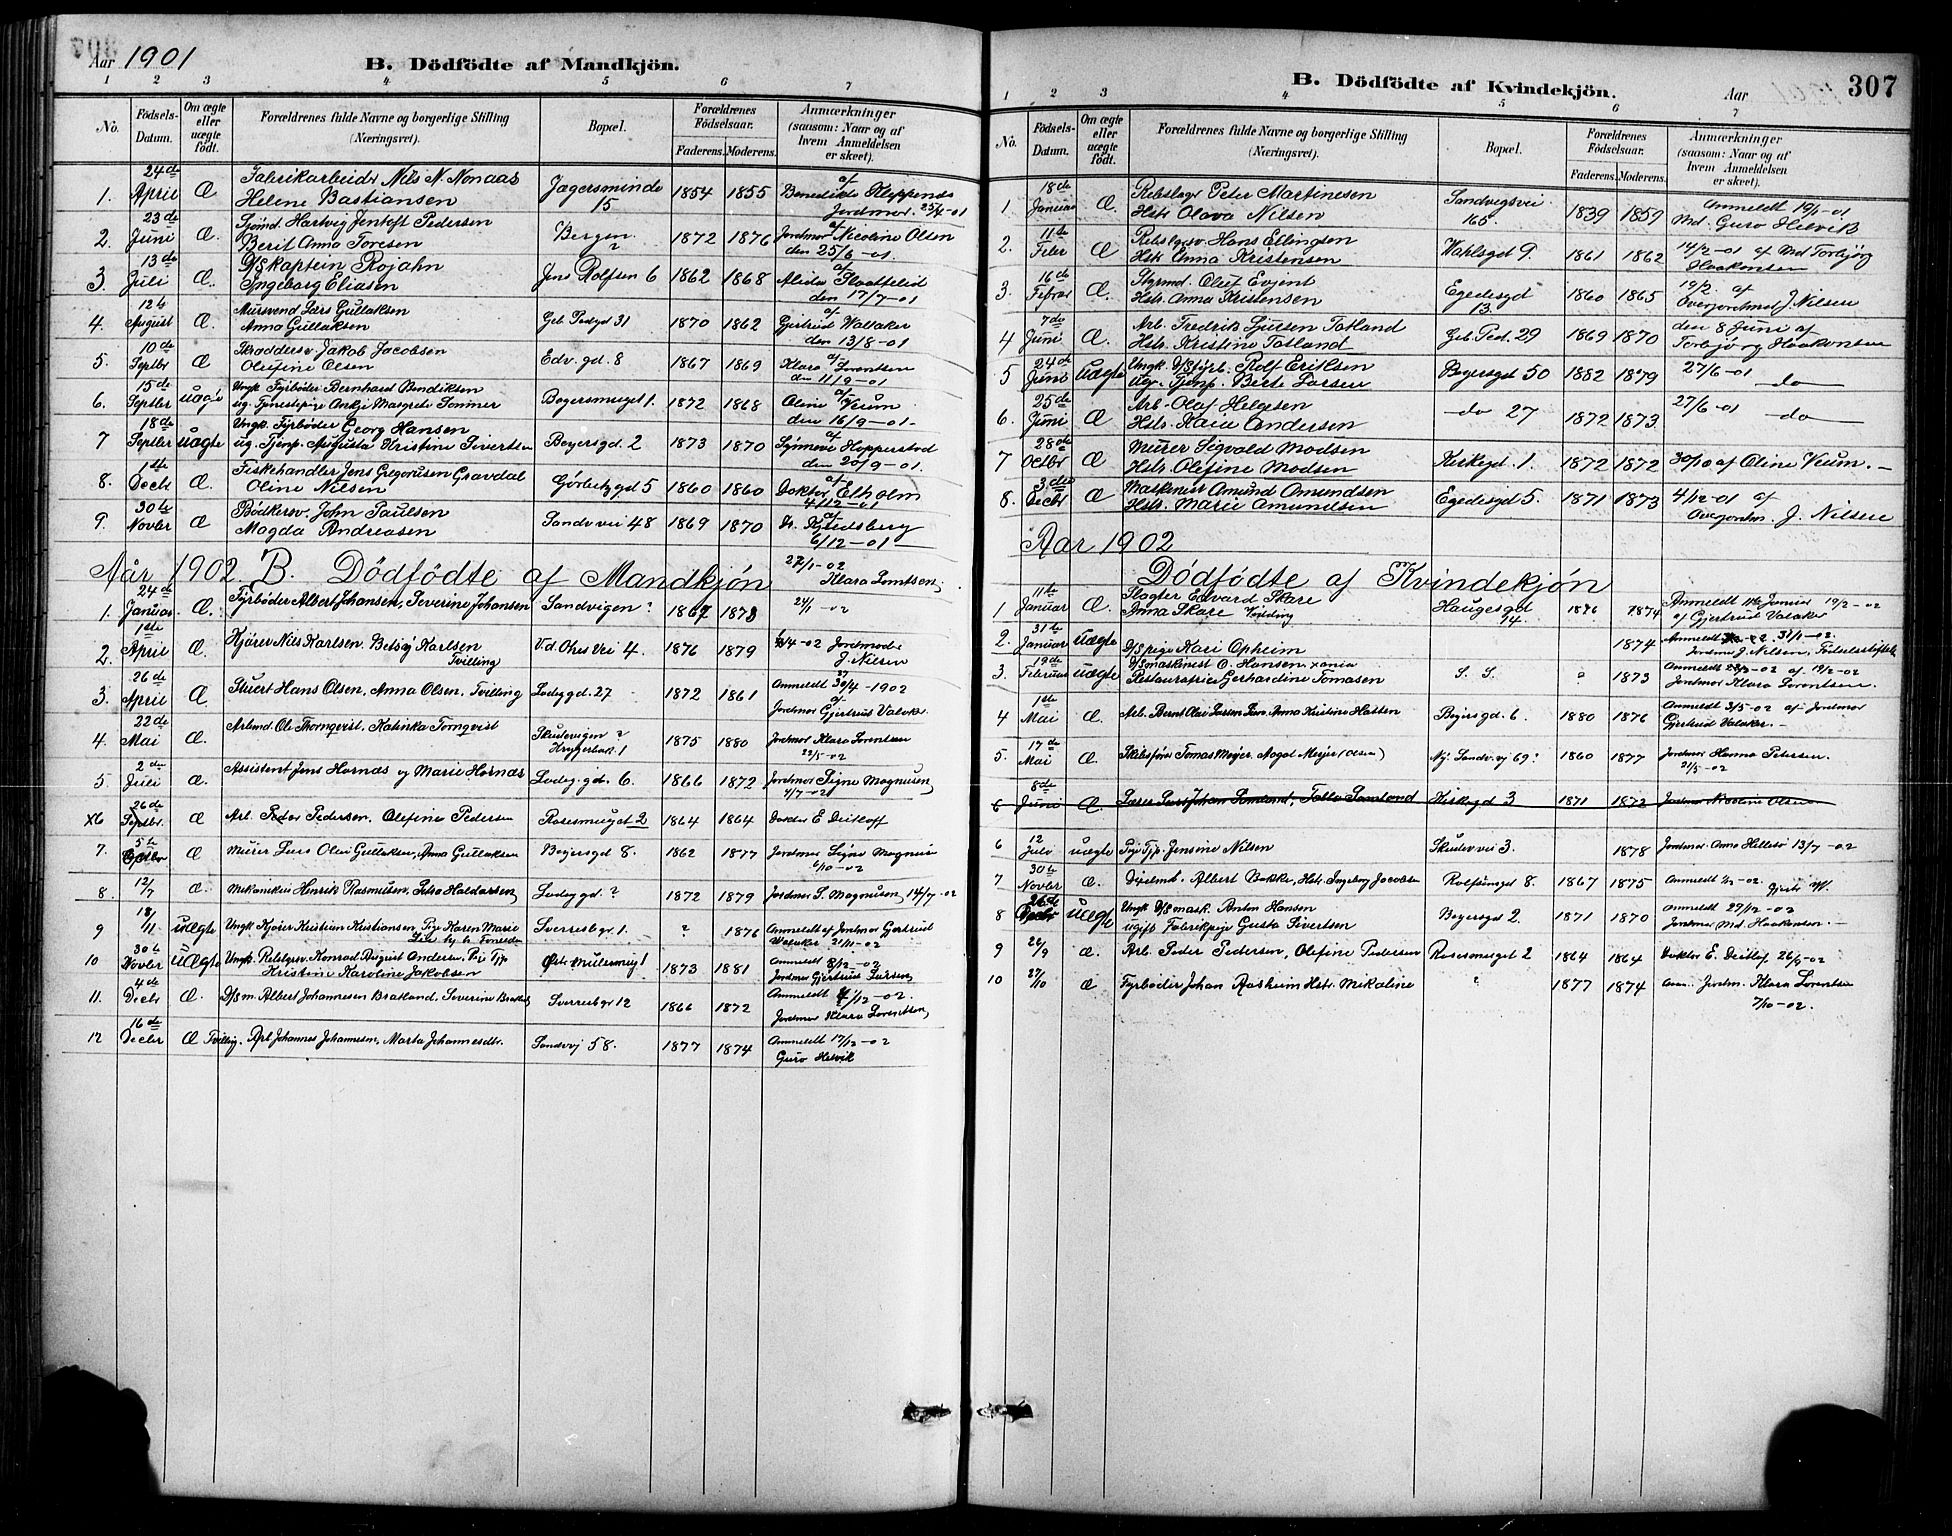 Aar 1901
B. Dödfödte af Mandkjön.
1 2 3 4 5 6 7
No. Födsels-Datum. Om ægte eller uægte födt. Forældrenes fulde Navne og borgerlige Stilling (Næringsvei). Bopæl. Forældrenes Födselsaar. Faderens. Moderens. Anmærkninger (saasom: Naar og af hvem Anmeldelsen er skeet).
24de Fabrikarbeider Nils N. Nonaas af
1. April Æ Helene Bastiansen Jægersminde 15 1854 1855 Benedikte Kleppenes Jordmor. 25/4-01
23de Sjömd. Hartvig Jentoft Pedersen af
2. Juni Æ. Berit Anna Toresen Bergen ? 1872 1876 Jordmor Nicoline Olsen den 25/6-01.
13de D/S Kaptein Rojahn af
3. Juli Æ. Ingeborg Eliasen Jens Rolfsen 6 1862 1868 Alida den 17/7-01
12te Mursvend Lars Gullaksen af
4. August Æ. Anna Gullaksen Geb Pedgd 31 1870 1862 Gjertrud Valvaker den 13/8-01
10de Skræddersv Jakob Jacobsen af
5. Septbr Æ Olefine Olsen Edv. gd. 8 1867 1869 Klara Lorentsen den 11/9-01
15de Ungk. Fyrböder Bernhard Bendiksen af
6. Septbr uægte ug. Tjenestepige Ankji Margrete Sommer Bøgersmuget 1. 1872 1868 Oline Veum den 16/9-01-
18de Ungk. Fyrböder Georg Hansen af
7 Septbr uægte ug. Tjenp. Augusta Kristine Sivertsen Beyersgd. 2 1873 1870 Synneve Hopperstad den 20/9-01.
1ste Fiskehandler Jens Gregoriusen Gravdal af
8. Decbr Æ. Oline Nilsen Görbitzgd 5 1860 1860 Doktor Elholm 4/12-01
30te Bödkersv. John Paulsen af
9. Novbr Æ Magda Andreasen Sandv vei 48 1869 1870 Dr. Kjeldsberg 6/12-01
Aar 1902 B. Dödfödte af Mandkjön
27/1-02 Klara Lorntsen
24de
1. Januar Æ. Fyrböder Albert Johansen, Severine Johansen Sandvigen ? 1867 1873 24/1-02
1ste
2. April Æ. Kjörer Nils Karlsen, Betsy Karlsen Tvilling V.d. Ohrs Vei 4. 1876 1879 4/4-02 Jordmoder J. Nilsen
26de
3. April Æ Stuert Hans Olsen, Anna Olsen, Tvilling Lodegd. 27 1872 1861 Anmeldt 30/4-1902 Jordmor Gjertrud Valvaker
22de
4. Mai Æ. Arbmd. Ole Thornqvist, Katinka Tornqvist Skutevigen ? Kryggerbak. 1 1875 1880 Jordmor Klara Lorentsen 22/5-02
2de
5. Juli Æ. Assistent Jens Hornæs og Marie Hornæs Lodeg. gd. 6. 1866 1872 Jordmor Signe Magnusen, 4/7-02
26de
x6 Septbr. Æ Arb. Peder Pedersen, Olefine Pedersen Rosesmuget 2 1864 1864 Doktor E. Deitloff
5te
7. Æ Murer Lars Olai Gullaksen, Anna Gullaksen Beyersgd 8. 1862 1877 Jordmor Signe Magnus 6/10-02
8. 12/7 Æ. Mekanikus Henrik Rasmusen, Petra Haldorsen, Lodeggd ? 1872 1879 Jordmor S. Magnusen, 14/7-02
9 18/11 uægte Ungk. Kjörer Kristian Kristiansen, Pige Karen Marie Sverresbgr. 1. ? 1876 Anmeldt af Jordmor Gjertrud Valvaker 21/11-02
30te
10 Novbr uægte Ungk. Rebslgsv. Konrad August Andersen, Pig Tjp Kristine Karoline Jakobsen Østr. Mulesmug 1 1873 1881 Anmeldt 8/12-02 Jordmor Gjertrud Larsen,
4de
11. Decbr Æ. D/S m. Albert Johannesen Bratland, Severine Sverresbgr 12 1866 1872 Anmeldt 4/12-02. Jordmor Klara Lorentsen,
16de
12 Decbr Æ Tvilling. Arb Johannes Johannesen, Marta Johannesdtr. Sandvvej 58. 1877 1874 Anmeldt 17/12-02 Guro Helvik
B. Dödfödte af Kvindekjön. Aar 307
1 2 3 4 5 6 7
No. Födsels-Datum. Om ægte eller uægte födt. Forældrenes fulde Navne og borgerlige Stilling (Næringsvei). Bopæl. Forældrenes Födselsaar. Faderens. Moderens. Anmærkninger (saasom: Naar og af hvem Anmeldelsen er skeet).
18de Rebslager Peter Martinesen
1 Januar Æ. Hstr. Olava Nilsen Sandvigsvei 165 1839 1859 Anmeldt 19/1-01 Md. Guro Helvik
11te Rebslgsv. Hans Ellingsen
2. Feb Æ Hstr. Anna Kristensen Wahlsgd 9. 1861 1862 14/2-01 af Md Torbjörg Haakonsen
16de Styrmd. Oluf Evjent
3. Febrar Æ. Hstr. Anna Kristensen Egedesgd 13. 1860 1865 19/2. af Overjordmod J. Nilsen
7de Arb. Fredrik Sjursen Totland
4 Juni Æ. Hstr. Kristine Totland Geb Ped. 29 1869 1870 den 8 Juni af Torbjørg Haakonsen
24de Ungk. D/S fyrb. Rolf Eriksen
5 Juni uægte ug. Tjenp. Berte Larsen Beyersgd 50 1882 1879 27/6-01 do
25de Arb. Olaf Helgesen
6. Juni Æ Hstr. Karie Andersen do 27 1872 1873 27/6-01 do
28de Murer Sigvald Madsen
7 Octbr Æ Hstr. Olefine Madsen Kirkegd. 1. 1872 1872 30/10 af Oline Veum.
3die Maskinist Amund Amundsen
8. Decbr Æ Hstr. Marie Amundsen Egedesgd 5. 1871 1873 4/12-01 af Overjordm. J. Nilsen
Aar 1902
Dödfödte af Kvindekjön
11te Slagter Edvard Skare
1 Januar Æ. Anna Skare Haugesgd 94. 1876 1874 Anmeldt 11te Januar 19/2-02 af Gjertrud Valaker
31te
2. Januar uægte D/S pige Kari Opheim 1874 Anmeldt 31/1-02. Jordmor J. Nilsen, Födselsstiftels
19de D/S maskinist O. Hansen xania
3. Februar uægte Restauratrice Gerhardine Tomasen S. S. ? 1873 Anmeldt af 19/2-02 Jordmor Klara Lorentsen.
1ste
4 Mai Æ. Arb. Bernt Olai Larsen Anna Kristine Hatten Beyersgd. 6. 1880 1876 Anmeldt 3/5-02 af Jordmor Gjertrud Valaker.
17de
5. Mai Æ. Skibsförer Tomas Meyer, Magd. Meyer (Olsen) Ny. Sandv. vj 69? 1860 1877 Jordmor Hanna Petersen. 21/5-02
8de
6 Juni Æ. Læser Johan Samland, Talla Samland Kirkegd 3 1871 1872 Jordmor Nicoline Olsen
12
6 Juli uægte Pige Tjp. Jensine Nilsen Skutevvei 3. 1878 Jordmor Anna Hellesö 13/7-02
30te
7 Novbr Æ. Dixelmd. Albert Bakke, Hstr. Ingeborg Jacobsen Rolfsengd 8. 1867 1875 Anmeldt 1/12-02. Gjertr. W.
26de Ungk D/S mask. Anton Hansen
8 Decbr uægte ugift Fabrikpige Gusta Sivertsen Beyersgd 2. 1871 1870 Anmeldt 27/12-02 Jordmor Md. Haakonsen
9 26/9 Æ. Arb. Peder Pedersen, Olefine Pedersen Rosesmuget 2 1864 1864 Doktor E. Deitlof 26/9-02
10 27/10 Æ Fyrböder Johan Aasheim Hstr. Mikaline ? 1877 1874 Anm. Jordm. Klara Lorentsen 7/10-02.